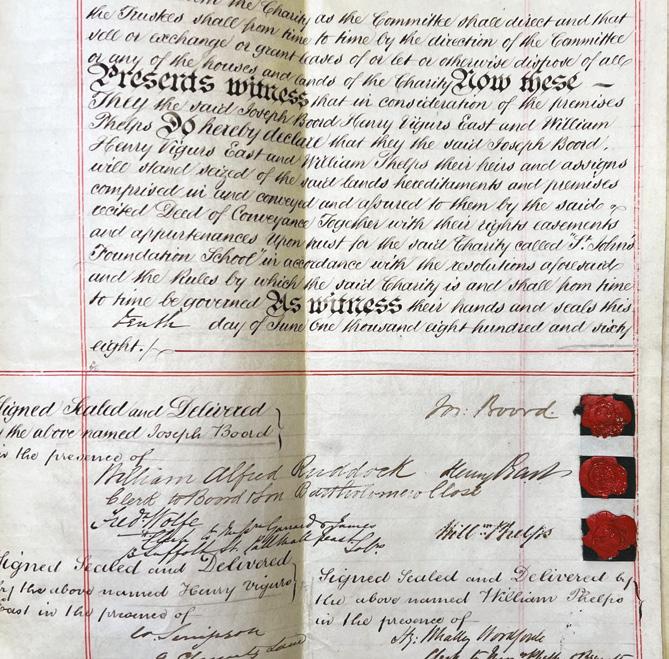 the Charity as the Committee shall direct and that
the Trustees shall from time to time by the direction of the Committee
sell or exchange or grant leases of or let or otherwise dispose of all
or any of the houses and lands of the Charity Now these —
Presents witness that in consideration of the premises
They the said Joseph Boord Henry Vigurs East and William
Phelps Do hereby declare that they the said Joseph Boord,
Henry Vigurs East and William Phelps their heirs and assigns
will stand seized of the said lands hereditaments and premises
comprised in and conveyed and assured to them by the said
recited Deed of Conveyance Together with their rights easements
and appurtenances Upon trust for the said Charity called "St. John's
Foundation School" in accordance with the resolutions aforesaid
and the Rules by which the said Charity is and shall from time
to time be governed As witness their hands and seals this
tenth day of June One thousand eight hundred and sixty
eight./
Signed Sealed and Delivered
the above named Joseph Boord
in the presence of
Jos: Boord.
William Alfred Ruddock
Clerk to Boord & Son Bartholomew Close
Henry East
Fredk Wolfe
Suffolk St. Pall Mall East
Willm Phelps
Signed Sealed and Delivered
by the above named Henry Vigurs
East in the presence of
Simpson
Signed Sealed and Delivered by
the above named William Phelps
in the presence of
Clerk to